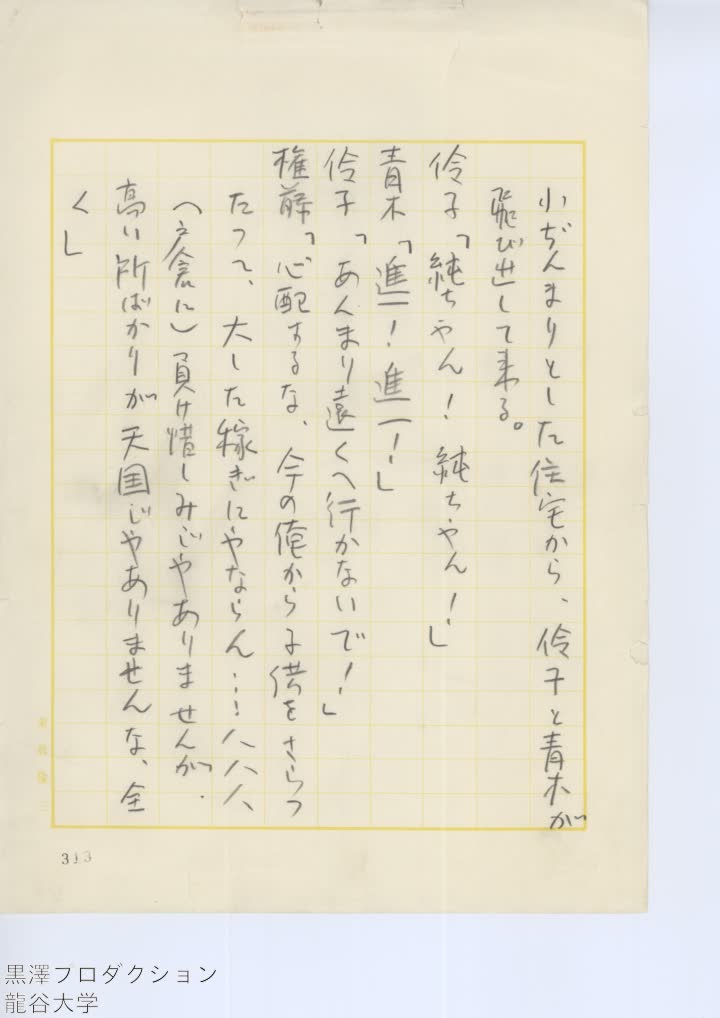 小ぢんまりとした住宅から、伶子と青木が
飛び出して来る。
伶子「純ちゃん！　純ちゃん！」
青木「進一！　進一！」
伶子「あんまり遠くへ行かないで！」
権藤「心配するな、今の俺から子供をさらっ
たって、大した稼ぎにやならん…！ハハハ、
（戸倉に）負け惜しみじやありませんが、
高い所ばかりが天国じやありませんな、全
く」
313
黒澤プロダクション
龍谷大学